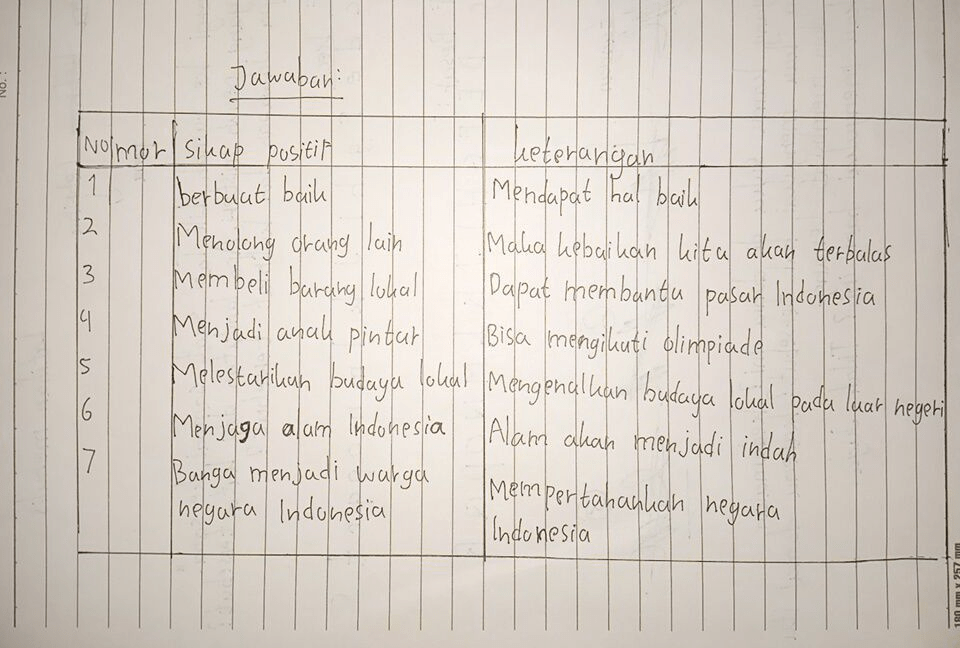 No. :
Jawaban:
Nomor sikap positif keterangan
1 berbuat baik Mendapat hal baik
2 Menolong orang lain Maka kebaikan kita akan terbalas
3 Membeli barang lokal Dapat membantu pasar Indonesia
4 Menjadi anak pintar Bisa mengikuti olimpiade
5 Melestarikan budaya lokal Mengenalkan budaya lokal pada luar negeri
6 Menjaga alam Indonesia Alam akan menjadi indah
7 Banga menjadi warga Mempertahankan negara
negara Indonesia Indonesia
180 mm x 257 mm